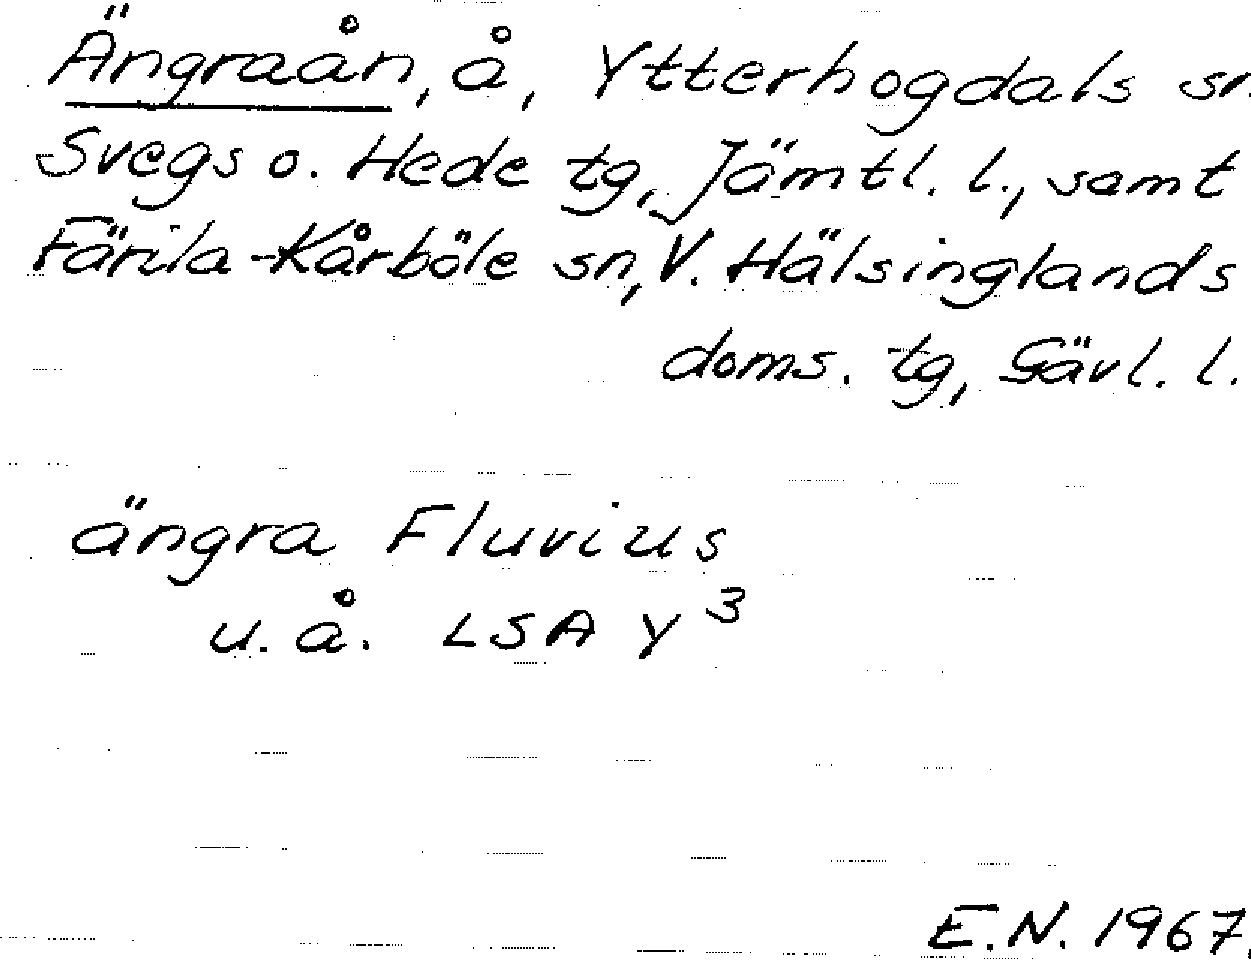 Ängraån, å, Ytterhogdals sn.
Svegs o. Hede tg, Jämtl. l., samt
Färila-Kårböle sn, V. Hälsinglands
doms. tg, Gävl. l.
ängra Fluvius
u. å. LSA Y³
E.N. 1967.